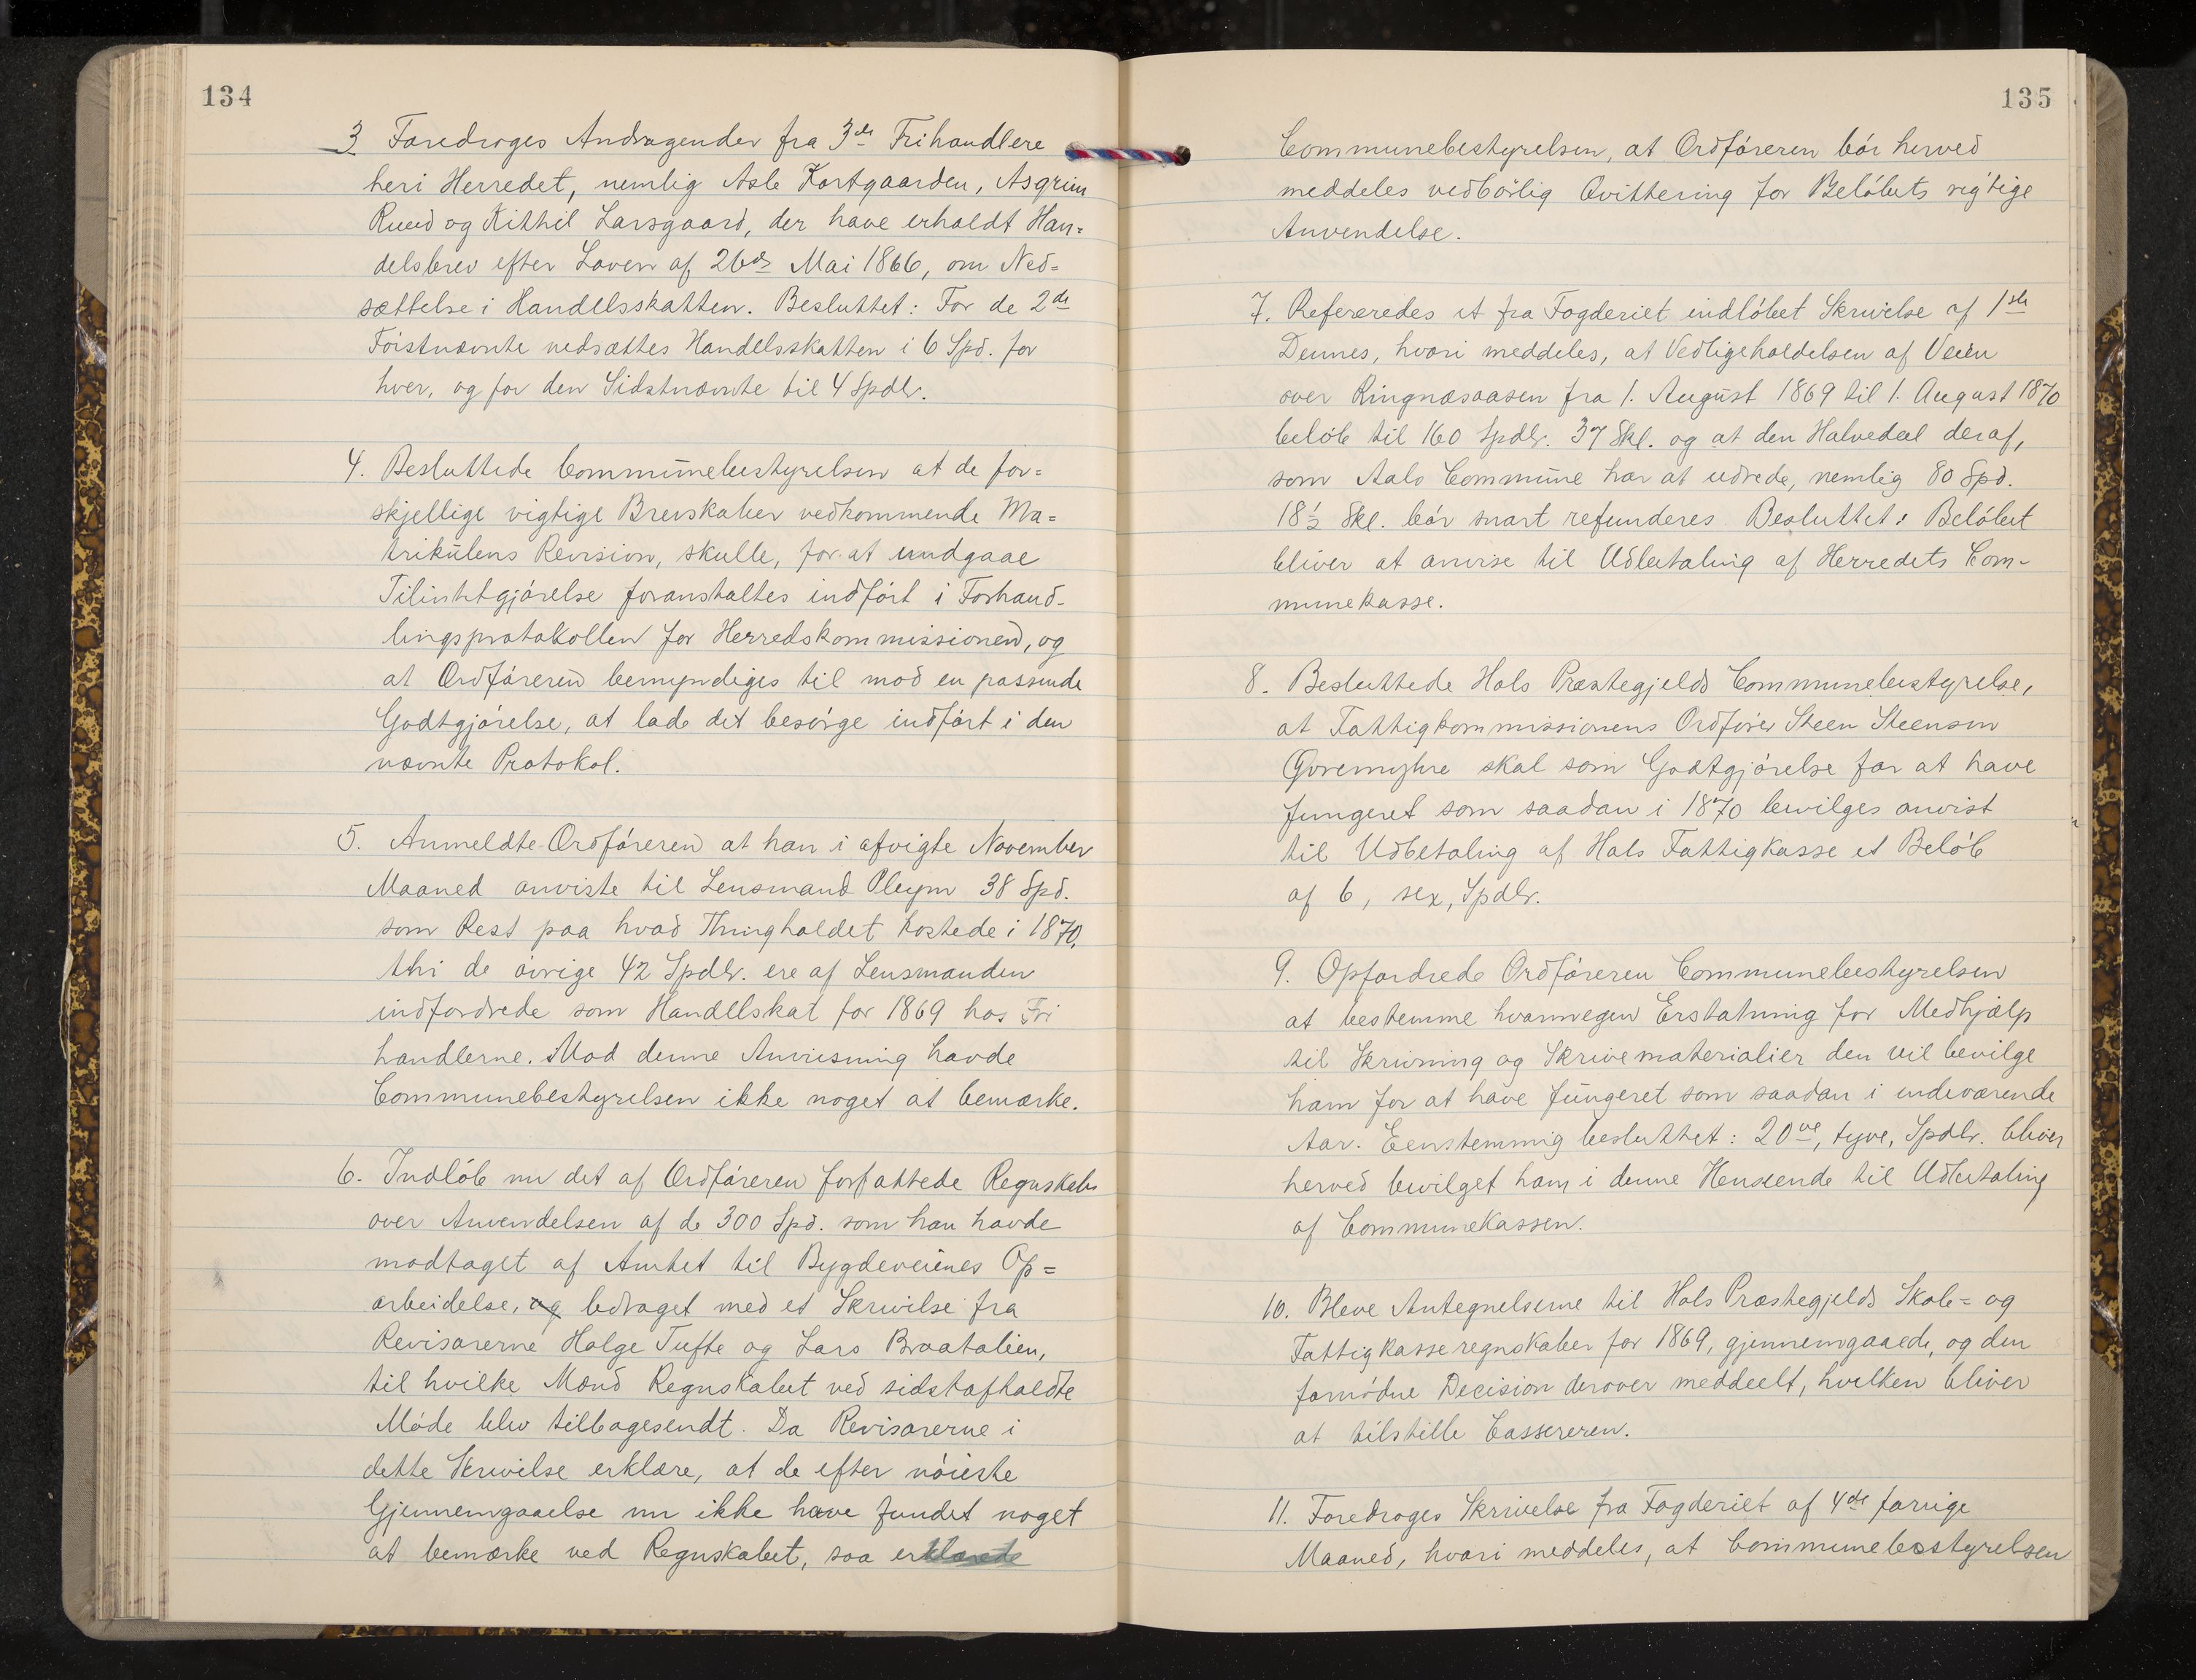 134
3 Foredroges Andragender fra 3de Frihandlere
heri Herredet, nemlig Asle Kortgaarden, Asgrim
Ruud og Kitthil Larsgaard, der have erholdt Han=
delsbrev efter Loven af 26de Mai 1866, om Ned=
sættelse i Handelsskatten. Besluttet: For de 2de
Förstnævnte nedsættes Handelsskatten i 6 Spd. for
hver, og for den Sidstnævnte til 4 Spdlr.
4. Besluttede Communebestyrelsen at de for=
skjellige vigtige Brevskaber vedkommende Ma=
trikulens Revision, skulle, for at undgaae
Tilinthtgjörelse foranstaltes indfört i Forhand-
lingsprotokollen for Herredskommissionen, og
at Ordföreren bemyndiges til mod en passende
Godtgjörelse, at lade det besörge indfört i den
nævnte Protokol.
5. Anmeldte Ordföreren at han i afvigte November
Maaned anviste til Lensmand Pleym 38 Spd.
som Rest paa hvad Thingholdet kostede i 1870,
thi de övrige 42 Spdlr. ere af Lensmanden
indfordrede som Handelskat for 1869 hos Fri
handlerne. Mod denne Anvisning havde
Communebestyrelsen ikke noget at bemærke.
6. Indlöb nu det af Ordföreren forfattede Regnskab
over Anvendelsen af de 300 Spd. som han havde
modtaget af Amtet til Bygdeveienes Op=
arbeidelse, og ledsaget med et Skrivelse fra
Revisorerne Holge Tufte og Lars Braatalien,
til hvilke Mænd Regnskabet ved sidstafholdte
Möde blev tilbagesendt. Da Revisorerne i
dette Skrivelse erklære, at de efter nöieste
Gjennemgaaelse nu ikke have fundet noget
at bemærke ved Regnskabet, saa erklærede
135
Communebestyrelsen, at Ordföreren bör herved
meddeles vedbörlig Qvittering for Belöbets rigtige
Anvendelse.
7. Refereredes et fra Fogderiet indlöbet Skrivelse af 1ste
Dennes, hvori meddeles, at Vedligeholdelsen af Veien
over Ringnæsaasen fra 1. August 1869 til 1. August 1870
belöb til 160 Spdlr. 37 Skl. og at den Halvedeel deraf,
som Aals Commune har at udrede, nemlig 80 Spd.
18½ Skl. bör snart refunderes. Besluttet: Belöbet
bliver at anvise til Udbetaling af Herredets Com-
munekasse.
8. Besluttede Hols Præstegjelds Communebestyrelse,
at Fattigkommissionens Ordförer Steen Steensen
Qvremyhre skal som Godtgjörelse for at have
fungeret som saadan i 1870 bevilges anvist
til Udbetaling af Hols Fattigkasse et Belöb
af 6, sex, Spdlr.
9. Opfordrede Ordföreren Communebestyrelsen
at bestemme hvormegen Erstatning for Medhjælp
til Skrivning og Skrivematerialier den vil bevilge
ham for at have fungeret som saadan i indeværende
Aar. Eenstemmig besluttet: 20ve, tyve, Spdlr. bliver
herved bevilget ham i denne Henseende til Udbetaling
af Communekassen.
10. Bleve Antegnelserne til Hols Præstegjelds Skole= og
Fattigkasseregnskaber for 1869, gjennemgaaede, og den
fornödne Decision derover meddeelt, hvilken bliver
at tilstille Cassereren.
11. Foredroges Skrivelse fra Fogderiet af 4de forrige
Maaned, hvori meddeles, at Communebestyrelsen